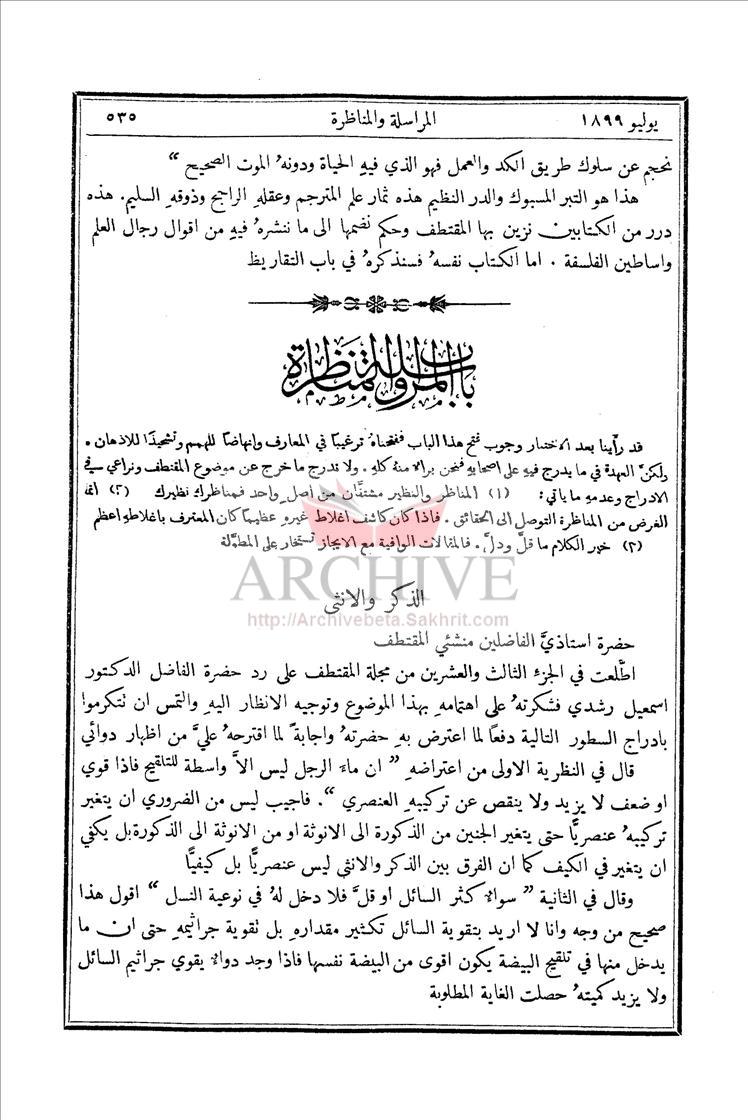 يوليو ١٨٩٩ المراسلة والمناظرة ٥٣٥
نحجم عن سلوك طريق الكد والعمل فهو الذي فيهِ الحياة ودونهُ الموت الصحيح “
هذا هو التبر المسبوك والدر النظيم هذه ثمار علم المترجم وعقلهِ الراجح وذوقهِ السليم. هذه
درر من الكتابين نزين بها المقتطف وحكم نضمها الى ما ننشرهُ فيهِ من اقوال رجال العلم
واساطين الفلسفة . اما الكتاب نفسهُ فسنذكرهُ في باب التقاريظ
باب المراسلة والمناظرة
قد رأينا بعد الاختبار وجوب فتح هذا الباب ففتحناهُ ترغيبًا في المعارف وانهاضًا للهمم وتشحيذًا للاذهان .
ولكنَّ العهدة في ما يدرج فيهِ على اصحابهِ فنحن برالا منهُ كلهِ . ولا ندرج ما خرج عن موضوع المقتطف ونراعي في
الادراج وعدمهِ ما ياتي : (١) المناظر والنظير مشتقَّان من اصلٍ واحد فمناظرك نظيرك (٢) انما
الغرض من المناظرة التوصل الى الحقائق . فاذا كان كاشف اغلاط غيرهِ عظيمًا كان المعترف باغلاطهِ اعظم
(٣) خير الكلام ما قلَّ ودلَّ . فالمقالات الوافية مع الايجاز تستخار على المطوَّلة
ARCHIVE
الذكر والانثى
http://Archivebeta.Sakhrit.com
حضرة استاذيَّ الفاضلين منشئي المقتطف
اطَّلعت في الجزء الثالث والعشرين من مجلة المقتطف على رد حضرة الفاضل الدكتور
اسمعيل رشدي فشكرتهُ على اهتمامهِ بهذا الموضوع وتوجيه الانظار اليهِ والتمس ان تتكرموا
بادراج السطور التالية دفعًا لما اعترض بهِ حضرتهُ واجابةً لما اقترحهُ عليَّ من اظهار دوائي
قال في النظرية الاولى من اعتراضهِ ” ان ماء الرجل ليس الاَّ واسطة للتلقيح فاذا قوي
او ضعف لا يزيد ولا ينقص عن تركيبهِ العنصري “. فاجيب ليس من الضروري ان يتغير
تركيبهُ عنصريًّا حتى يتغير الجنين من الذكورة الى الانوثة او من الانوثة الى الذكورة بل يكفي
ان يتغير في الكيف كما ان الفرق بين الذكر والانثى ليس عنصريًّا بل كيفيًّا
وقال في الثانية ” سوالا كثر السائل او قلَّ فلا دخل لهُ في نوعية النسل “ اقول هذا
صحيح من وجه وانا لا اريد بتقوية السائل تكثير مقدارهِ بل تقوية جراثيمهِ حتى ان ما
يدخل منها في تلقيح البيضة يكون اقوى من البيضة نفسها فاذا وجد دوالا يقوي جراثيم السائل
ولا يزيد كميتهُ حصلت الغاية المطلوبة